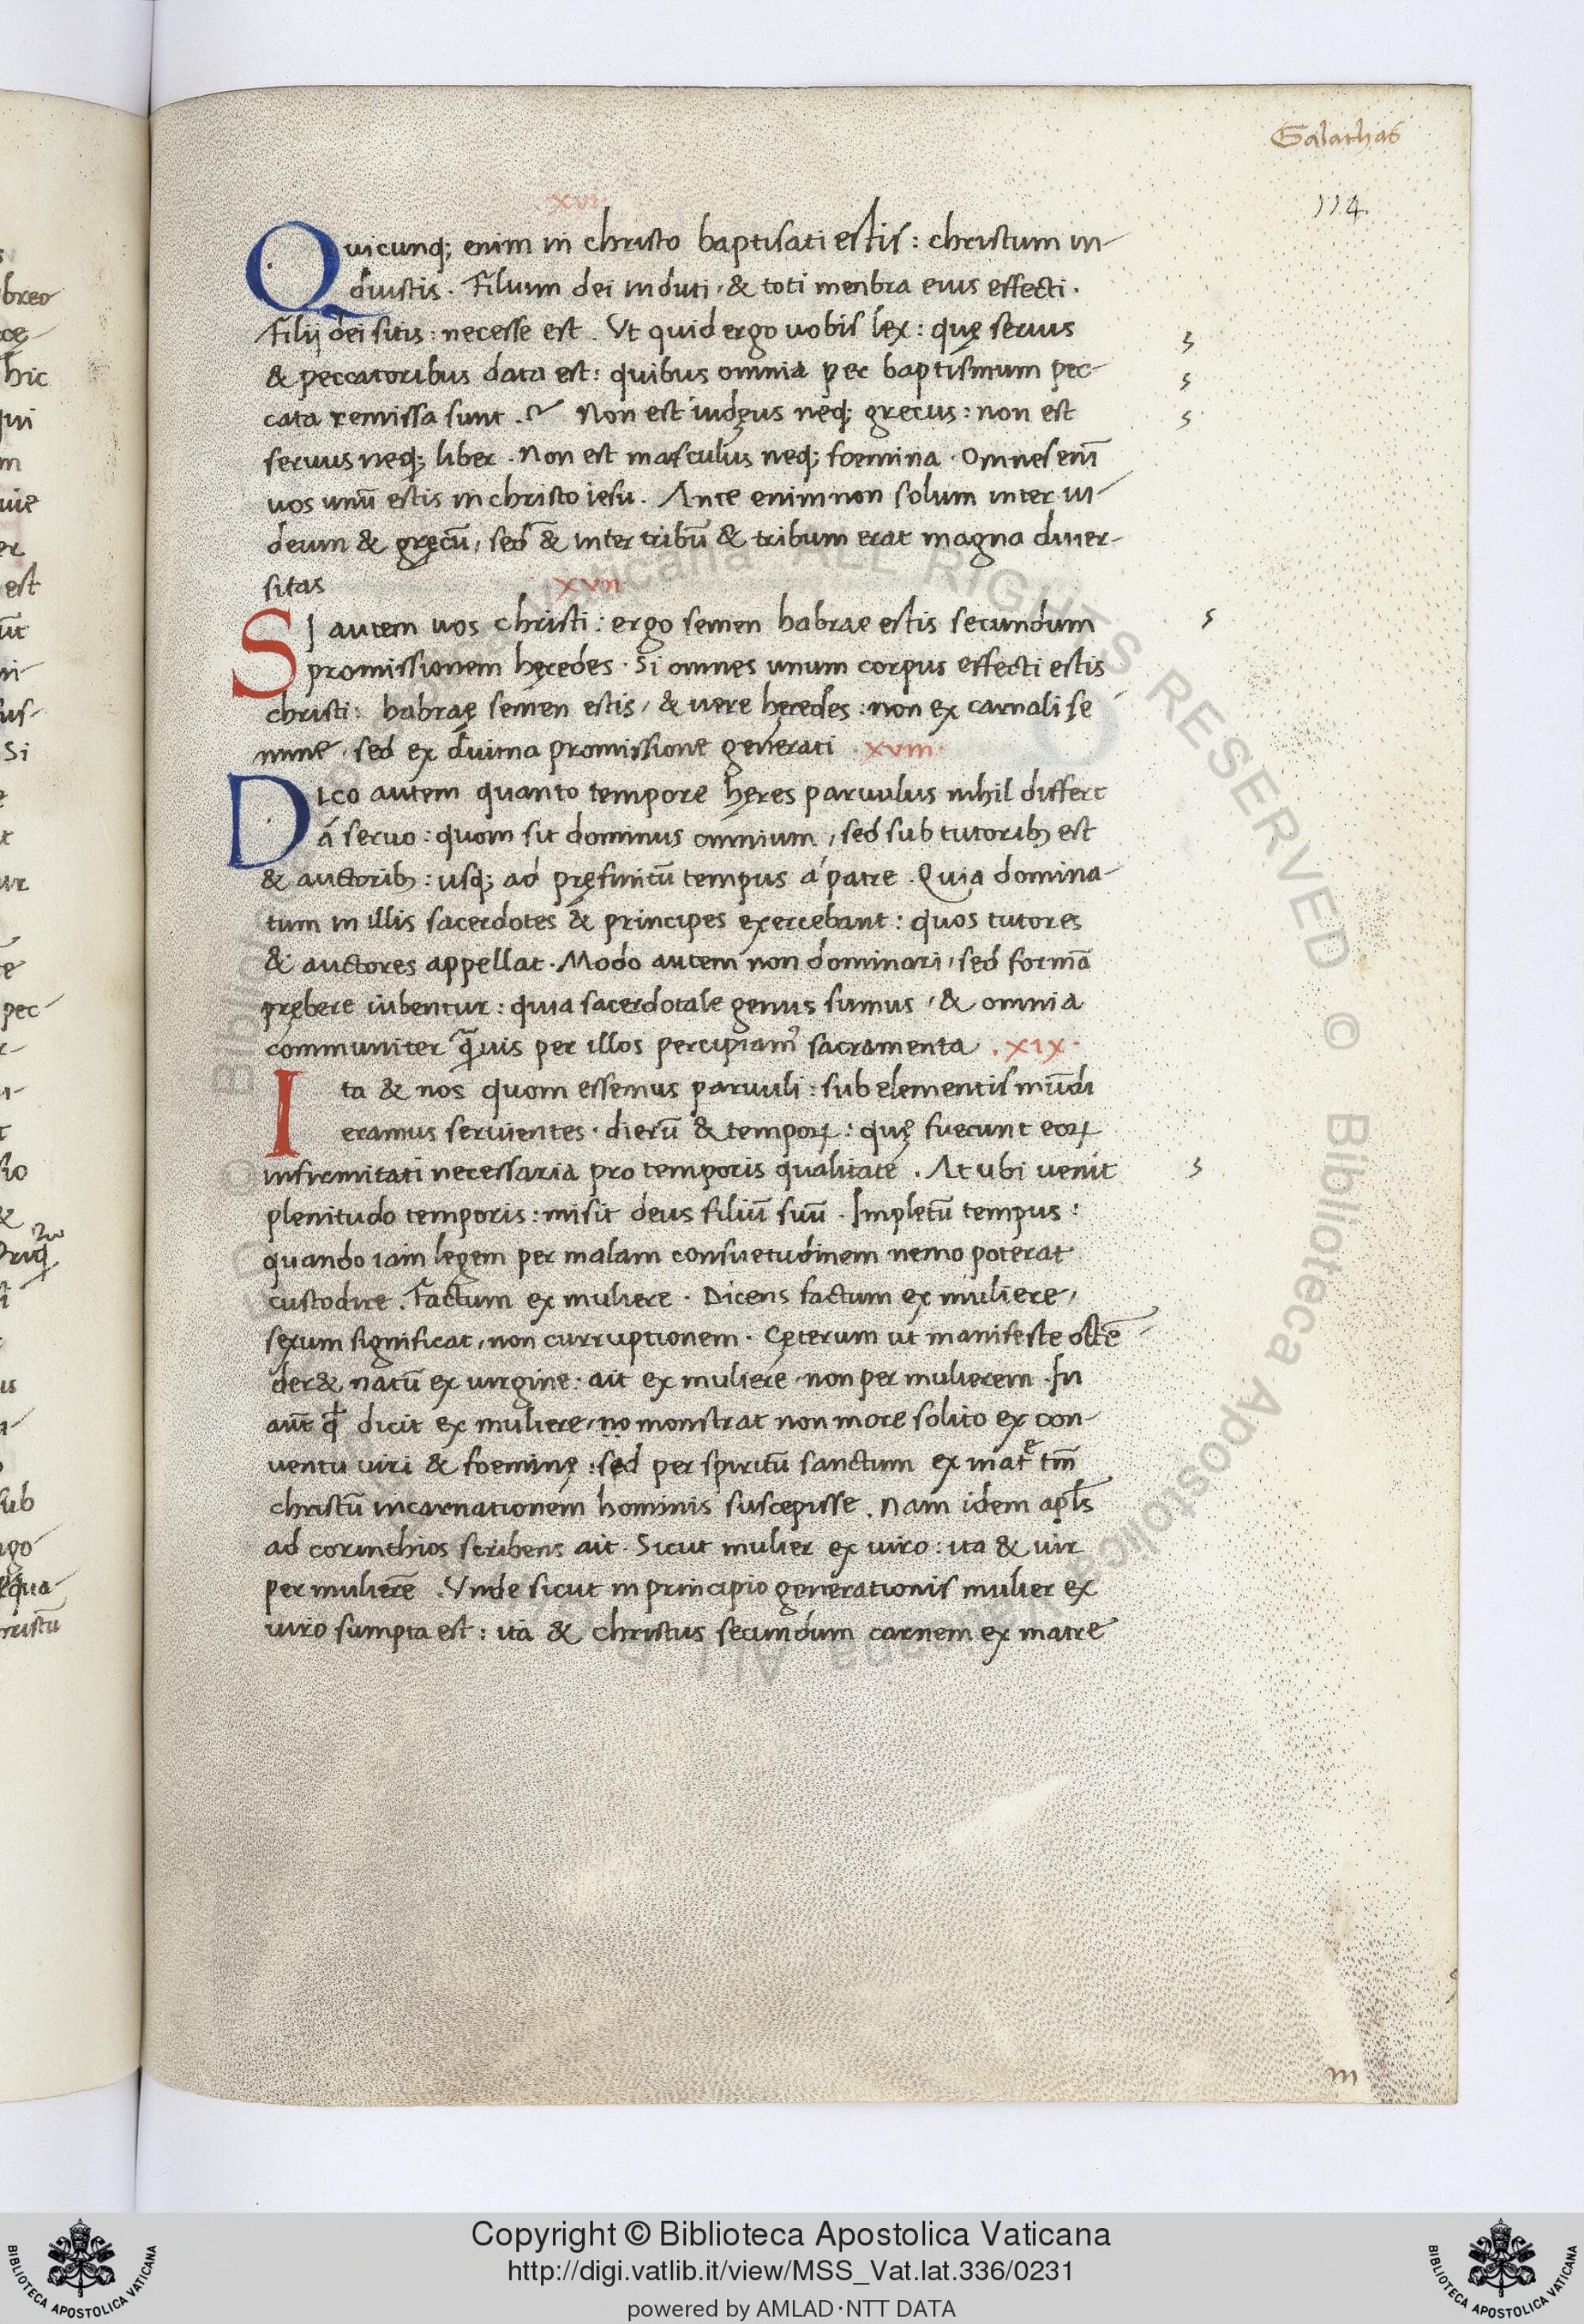 Galathas
114
.xvi.
Quicunq; enim in christo baptisati estis : christum in-
duistis . Filium dei induti , & toti menbra eius effecti .
Filij dei sitis : necesse est . Ut quid ergo uobis lex : quę seruis
& peccatoribus data est : quibus omnia per baptismum pec-
cata remissa sunt . Non est iudęus neq; grecus : non est
seruus neq; liber . Non est masculus neq; foemina . Omnes eni̅
uos unu̅ estis in christo iesu . Ante enim non solum inter iu-
deum & gręcu̅ , sed & inter tribu̅ & tribum erat magna diuer-
sitas
.xvii
SI autem uos christi : ergo semen habrae estis secundum
promissionem hęredes . Si omnes unum corpus effecti estis
christi : habraę semen estis , & uere hęredes : non ex carnali se
mine . sed ex diuina promissione generati .xviii.
Dico autem quanto tempore hęres paruulus nihil differt
á seruo : quom sit dominus omnium , sed sub tutorib3 est
& auctorib3 : usq; ad pręfinitu̅ tempus á patre . Quia domina-
tum in illis sacerdotes & principes exercebant : quos tutores
& auctores appellat . Modo autem non dominari , sed forma̅
prębere iubentur : quia sacerdotale genus sumus , & omnia
communiter qua̅uis per illos percipiam᾿ sacramenta .xix.
Ita & nos quom essemus paruuli : sub elementis mu̅di
eramus seruientes . dieru̅ & temporꝝ : quę fuerunt eorꝝ
infirmitati necessaria pro temporis qualitate . At ubi uenit
plenitudo temporis : misit deus filiu̅ suu̅ . Impletu̅ tempus :
quando iam legem per malam consuetudinem nemo poterat
custodire . Factum ex muliere . Dicens factum ex muliere ,
sexum significat , non curruptionem . Cęterum ut manifeste oste̅
der& natu̅ ex uirgine : ait ex muliere , non per mulierem . In
au̅t dicit ex muliere , no monstrat non more solito ex con-
uentu uiri & foeminę : sed per spiritu̅ sanctum ex matre tm̅
christu̅ incarnationem hominis suscepisse . Nam idem apl̅s
ad corinthios scribens ait . Sicut mulier ex uiro : ita & uir
per muliere̅ . Unde sicut in principio generationis mulier ex
uiro sumpta est : ita & christus secundum carnem ex matre
m
Copyright © Biblioteca Apostolica Vaticana
http://digi.vatlib.it/view/MSS_Vat.lat.336/0231
powered by AMLAD·NTT DATA
BIBLIOTECA APOSTOLICA VATICANA
BIBLIOTECA APOSTOLICA VATICANA